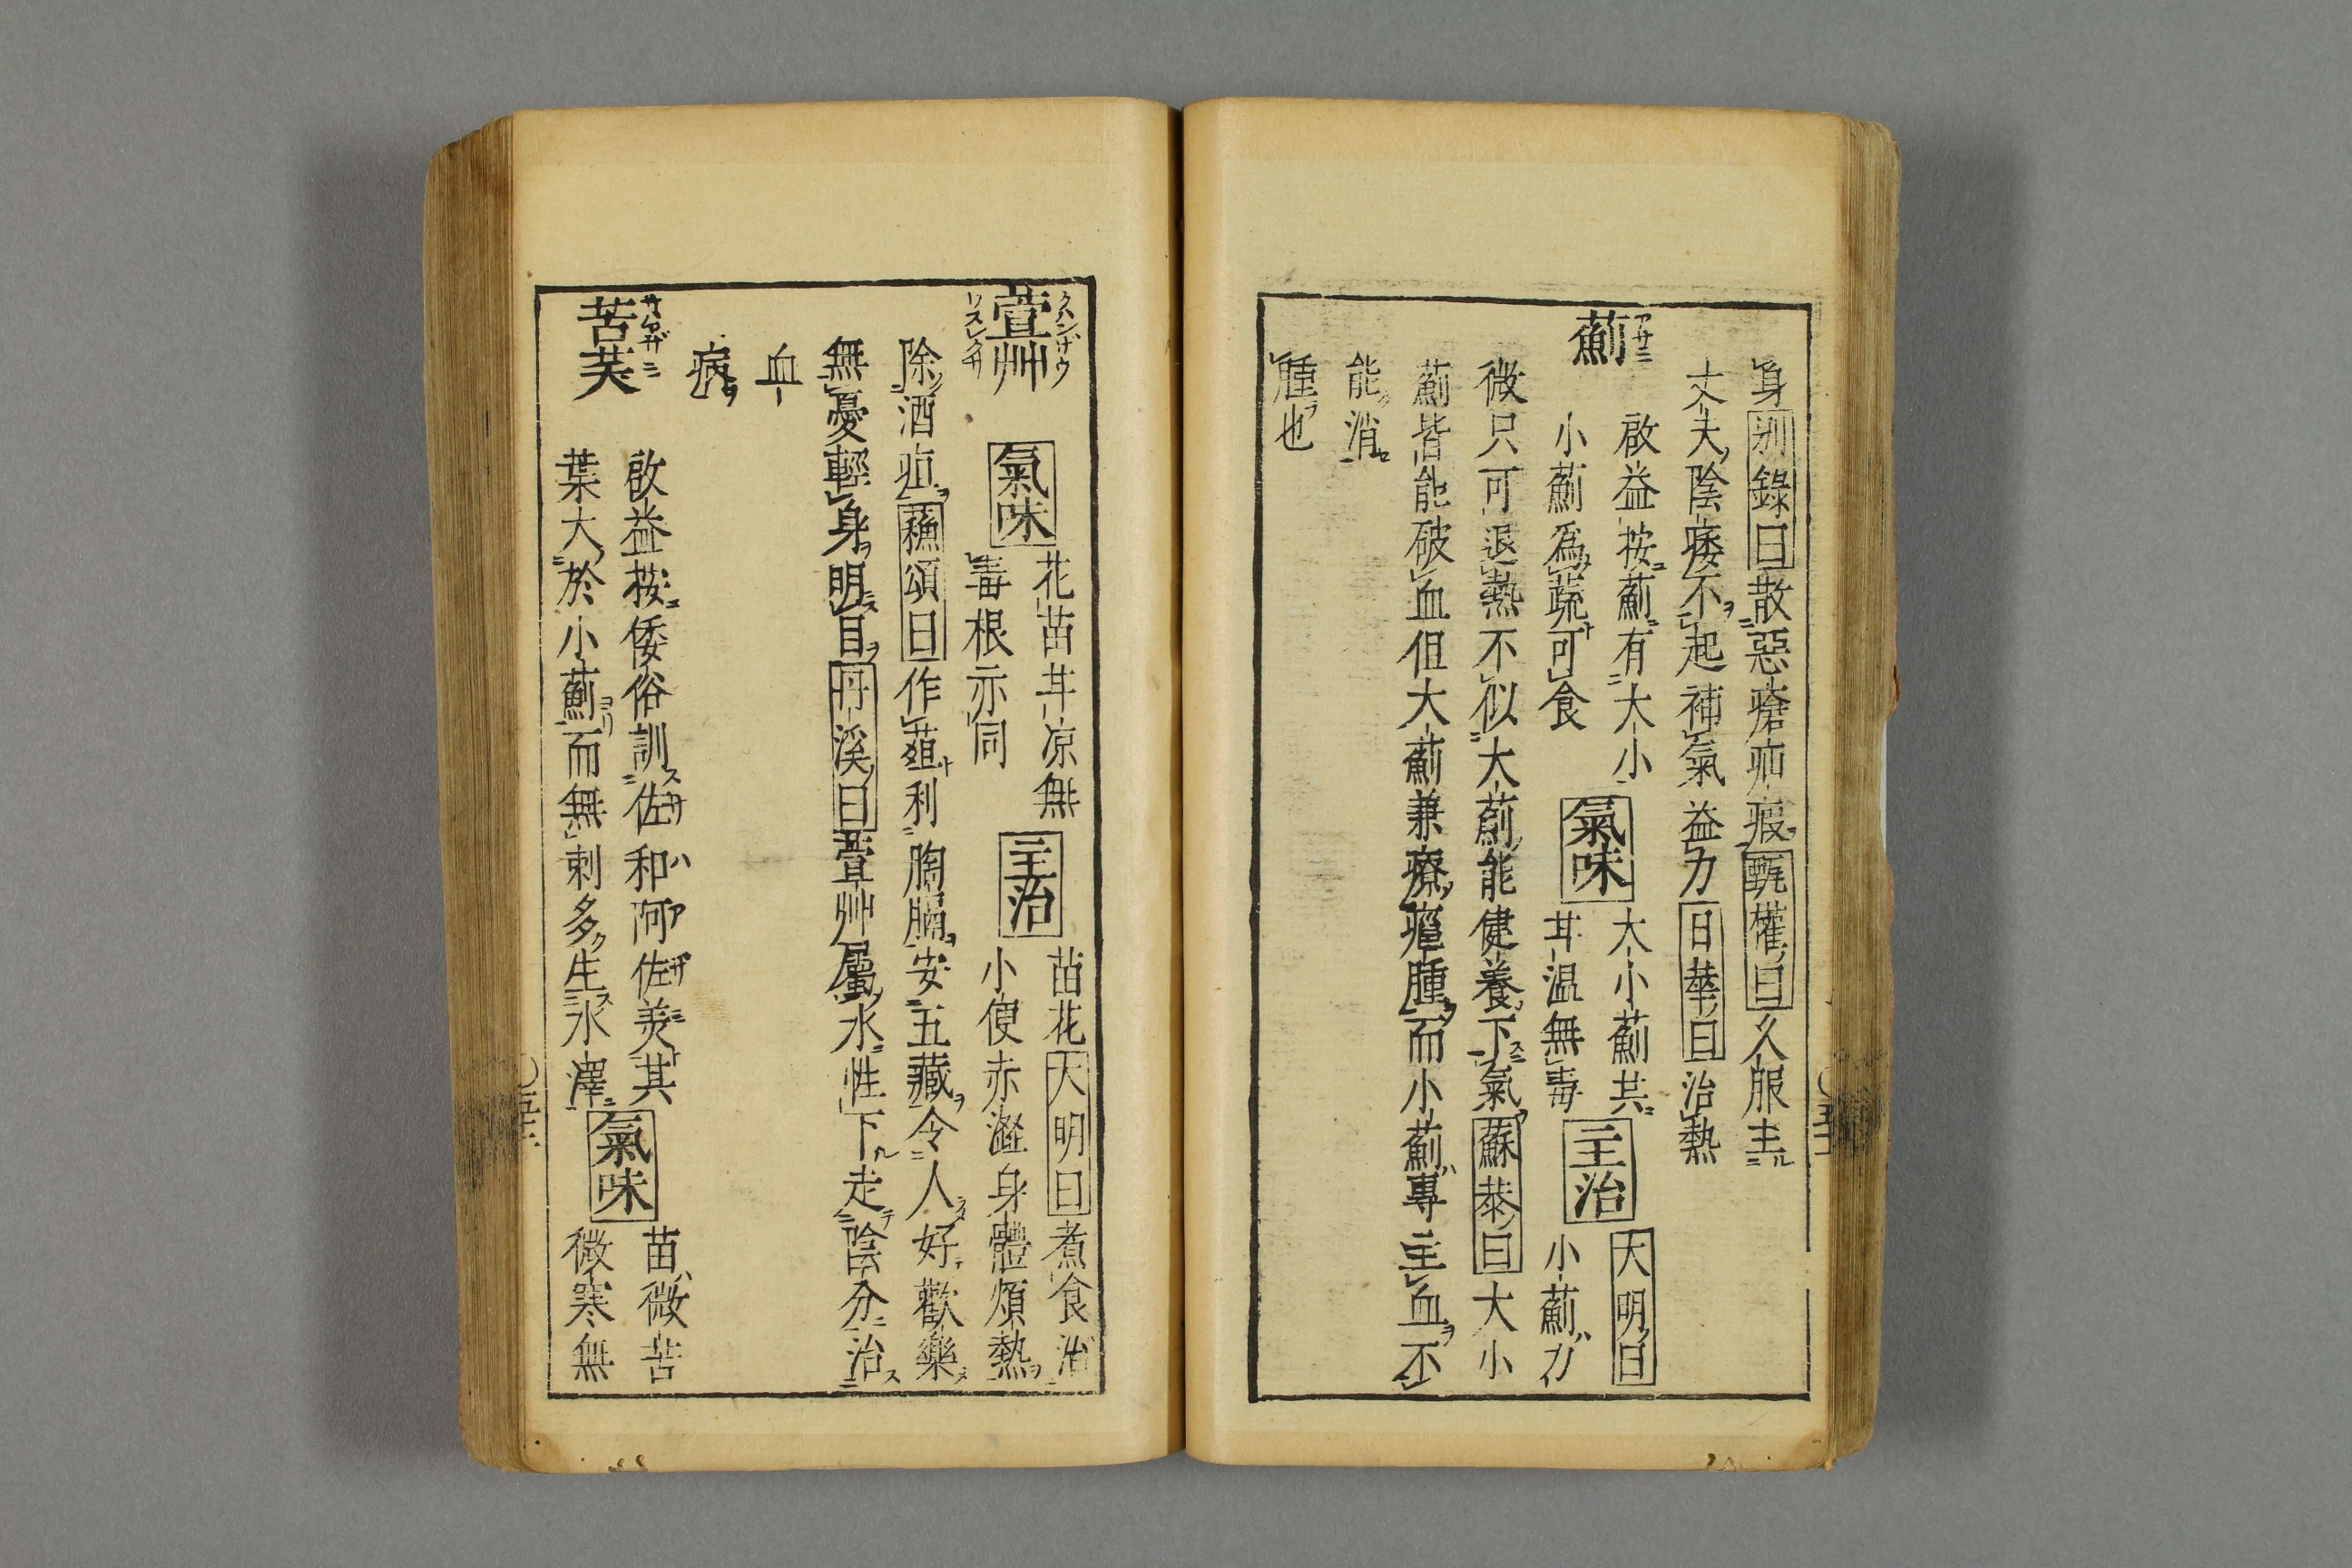 身別錄曰散惡瘡疥瘕甄權曰久服主
丈夫陰痿不起補氣益力日華曰治熱
薊
アサミ
啟益按薊有大小
小薊爲蔬可食
氣味
大小薊共
甘温無毒
主治
大明曰
小薊力
微只可退熱不似大薊能健養下氣蘇恭曰大小
薊皆能破血但大薊兼療癰腫而小薊專主血不
能消
腫也
萱艸
クハンザウ
ワスレクサ
氣味
花苗甘凉無
毒根亦同
主治
苗花大明曰煮食治
小便赤澁身體煩熱
除酒疸蘓頌曰作葅利胸膈安五藏令人好歡樂
無憂輕身明目丹溪曰萱艸屬水性下走陰分治
血
病
苦芺
サハアザミ
啟益按倭俗訓佐和阿佐美其
葉大於小薊而無刺多生水澤
氣味
苗微苦
微寒無